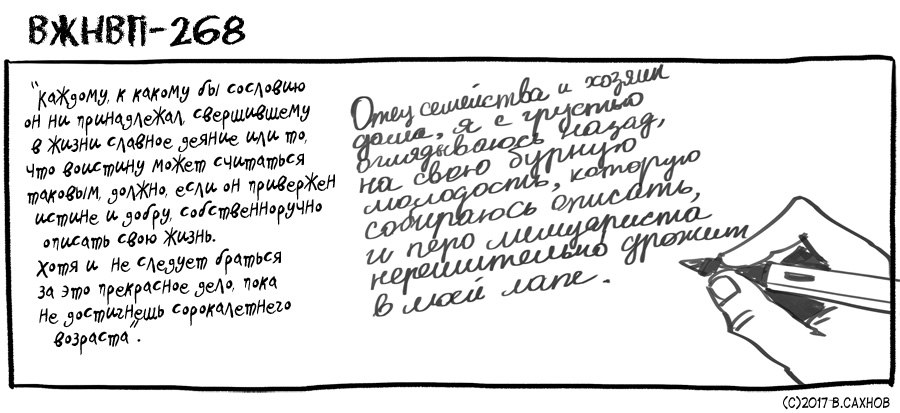 ВЖНВП-268
"Каждому, к какому бы сословию
он ни принадлежал, свершившему
в жизни славное деяние или то,
что воистину может считаться
таковым, должно, если он привержен
истине и добру, собственноручно
описать свою жизнь.
Хотя и не следует браться
за это прекрасное дело, пока
не достигнешь сорокалетнего
возраста".
Отец семейства и хозяин
дома, я с грустью
оглядываюсь назад,
на свою бурную
молодость, которую
собираюсь описать,
и перо мемуариста
нерешительно дрожит
в моей лапе.
(С)2017 В.САХНОВ